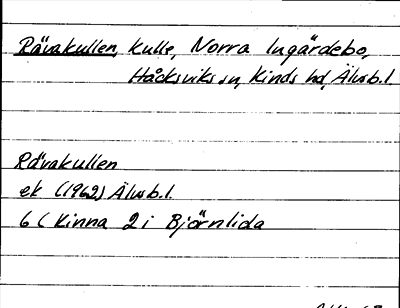 Rävakullen, kulle, Norra Ingärdebo,
Håcksviks sn, Kinds hd, Älvsb.l.
Rävakullen
ek (1962) Älvsb.l.
6 ( Kinna 2 i Björnlida